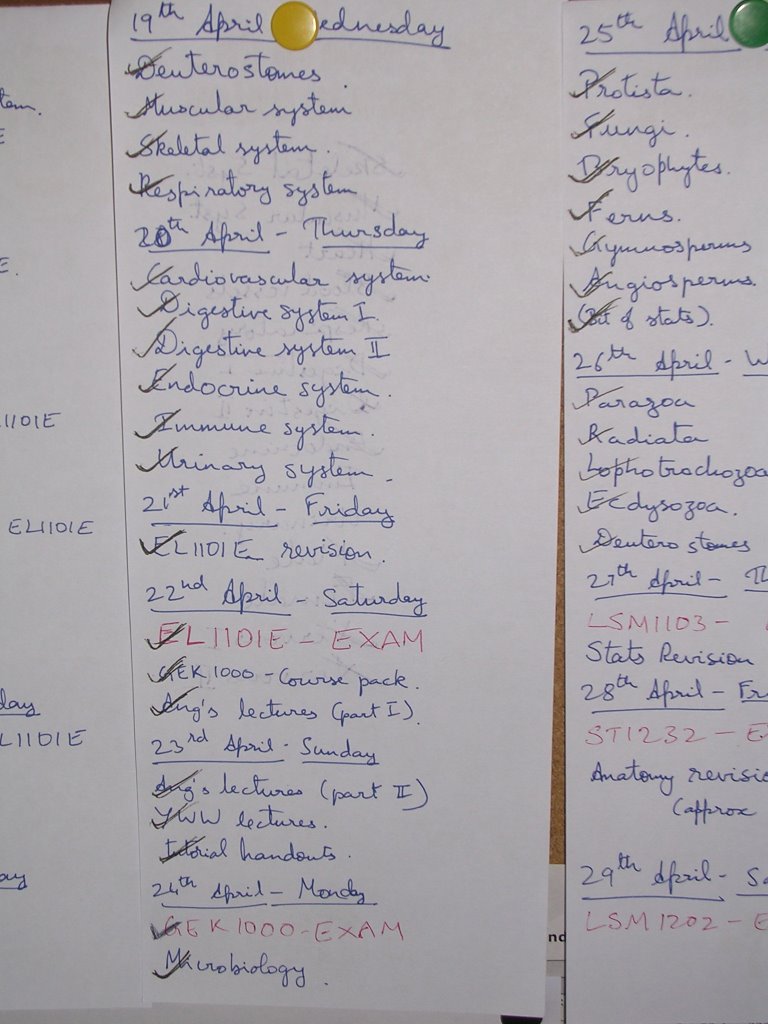 tem.
E
E.
L1101E
EL1101E
day
L1101E
ay
19th April ednesday
Deuterostomes
Muscular system
Skeletal system.
Respiratory system
20th April - Thursday
Cardiovascular system.
Digestive system I.
Digestive system II
Endocrine system.
Immune system.
Urinary system.
21st April - Friday
EL1101E revision.
22nd April - Saturday
EL1101E - EXAM
GEK1000 - Course pack.
Ang's lectures (part I).
23rd April - Sunday
Ang's lectures (part II)
YWW lectures.
Tutorial handouts.
24th April - Monday
GEK1000 - EXAM
Microbiology.
25th April
Protista.
Fungi.
Bryophytes.
Ferns.
Gymnosperms
Angiosperms.
(Bit of stats).
26th April - W
Parazoa
Radiata
Lophotrochozoa
Ecdysozoa.
Deuterostomes
27th April - Th
LSM1103 -
Stats Revision
28th April - Fr
ST1232 - E
Anatomy revisio
(approx
29th April - Sa
LSM1202 - E
nd